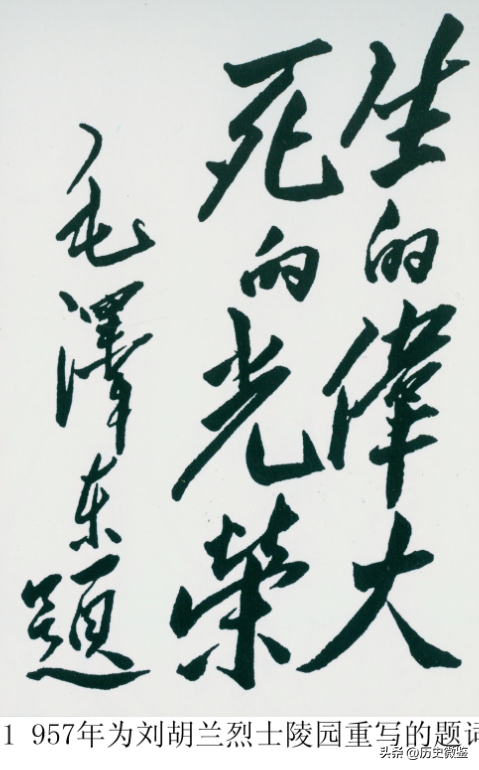 生的偉大
死的光榮
毛澤东題
1957年为刘胡兰烈士陵园重写的题词
头条 @历史微鉴